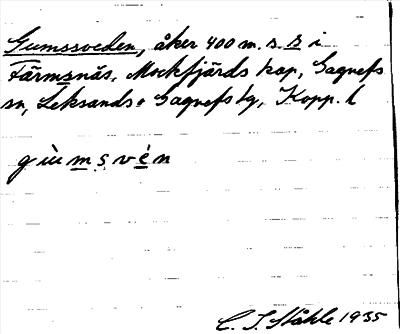 Gumssveden, åker 400 m. s. s i
Färmsnäs, Mockfjärds kap, Gagnefs
sn, Leksands o Gagnefs tg, Kopp. l
gùmsvén
C. I. Ståhle 1935